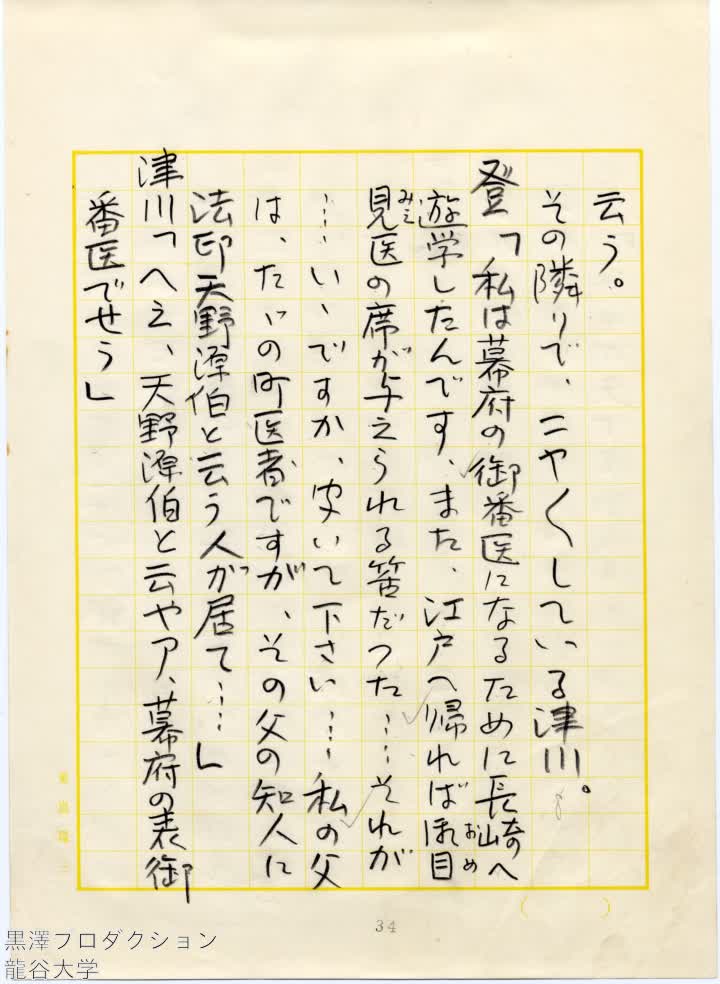 云う。
その隣りで、ニヤ〱している津川。
登「私は幕府の御番医になるために長崎へ
遊学したんです、また、江戸へ帰れば御目
おめ
見医の席が与えられる筈だった……それが
みえ
……いゝですか、聞いて下さい……私の父
は、たゞの町医者ですが、その父の知人に
法印天野源伯と云う人が居て……」
津川「へえ、天野源伯と云やア、幕府の表御
番医でせう」
34
黒澤プロダクション
龍谷大学